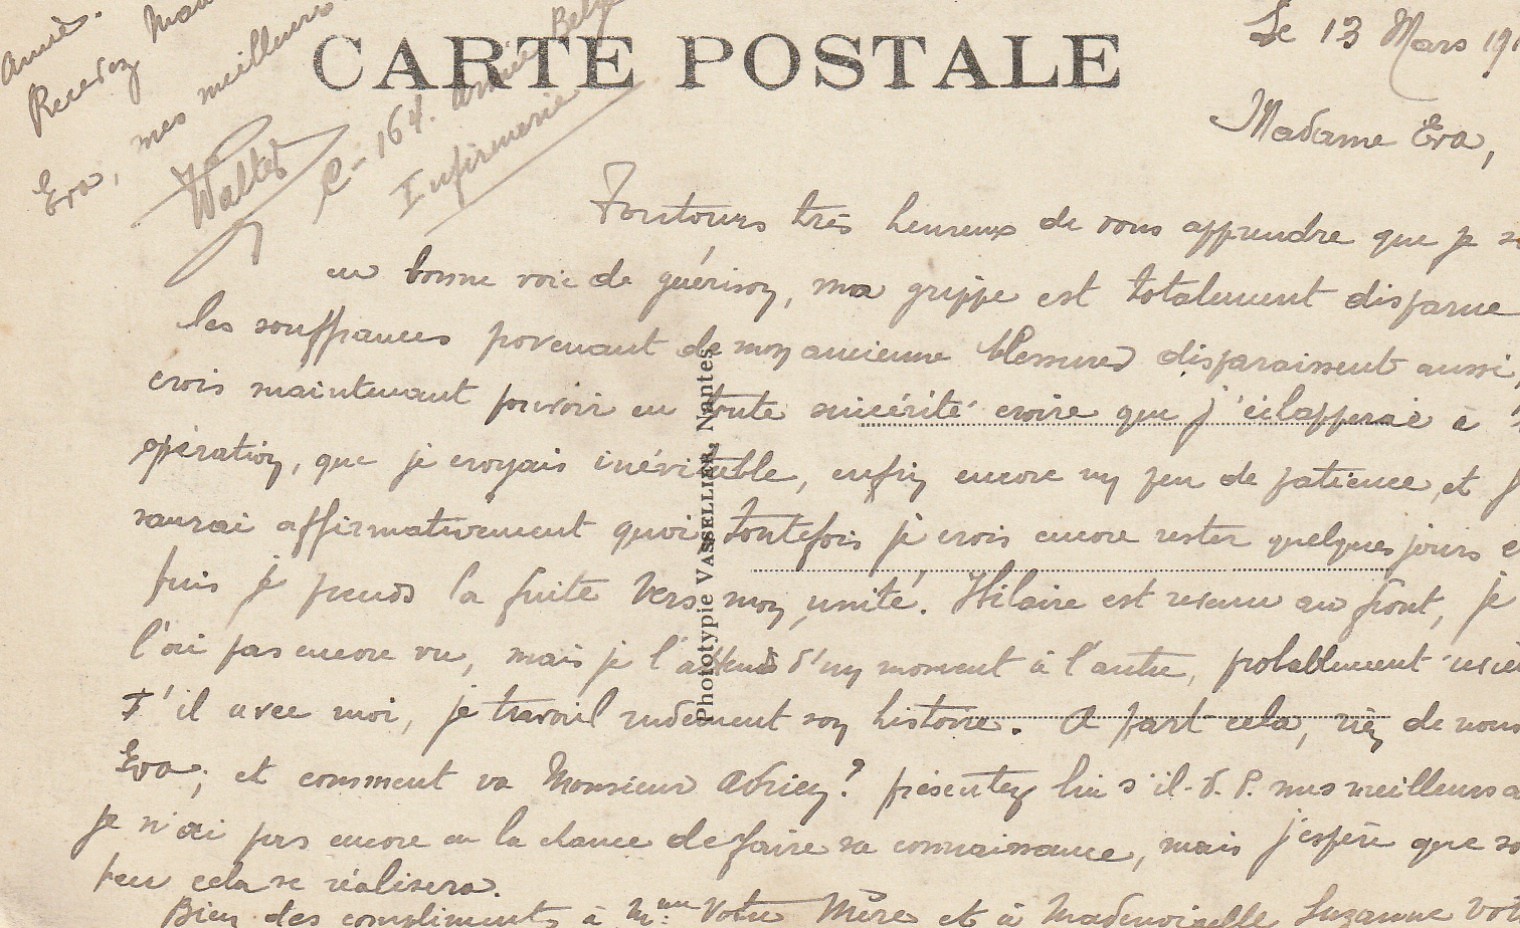 CARTE POSTALE
Le 13 Mars 191
Madame Eva,
Toutours très heureux de vous apprendre que je
en bonne voie de guérison, ma grippe est totalement disparue
les souffrances provenant de mon ancienne blessures disparaissent aussi,
crois maintenant pouvoir en toute sincérité croire que j'éclapperai à
opération, que je croyais inévitable, enfin encore un peu de patience et
saurai affirmativement quoi, toutefois je crois encore rester quelques jours
puis je prends la fuite vers mon unité. Hilaire est revenu au front, je
l'ai pas encore vu, mais je l'attends d'un moment à l'autre, probablement
T'il avec moi, je travail rudement son histoire. A part cela, rien de nous
Eva; et comment va Monsieur Adrien? présentez lui s'il.V.P. mes meilleurs
je n'ai pas encore eu la chance de faire sa connaissance, mais j'espère que
peu cela se réalisera.
Bien des compliments à Mme Votre Mère et à Mademoiselle Suzanne
Amie.
Recevez
Eva, mes meilleurs
Walter
C-164. Armée
Infirmerie
Phototypie VASSELLIER, Nantes